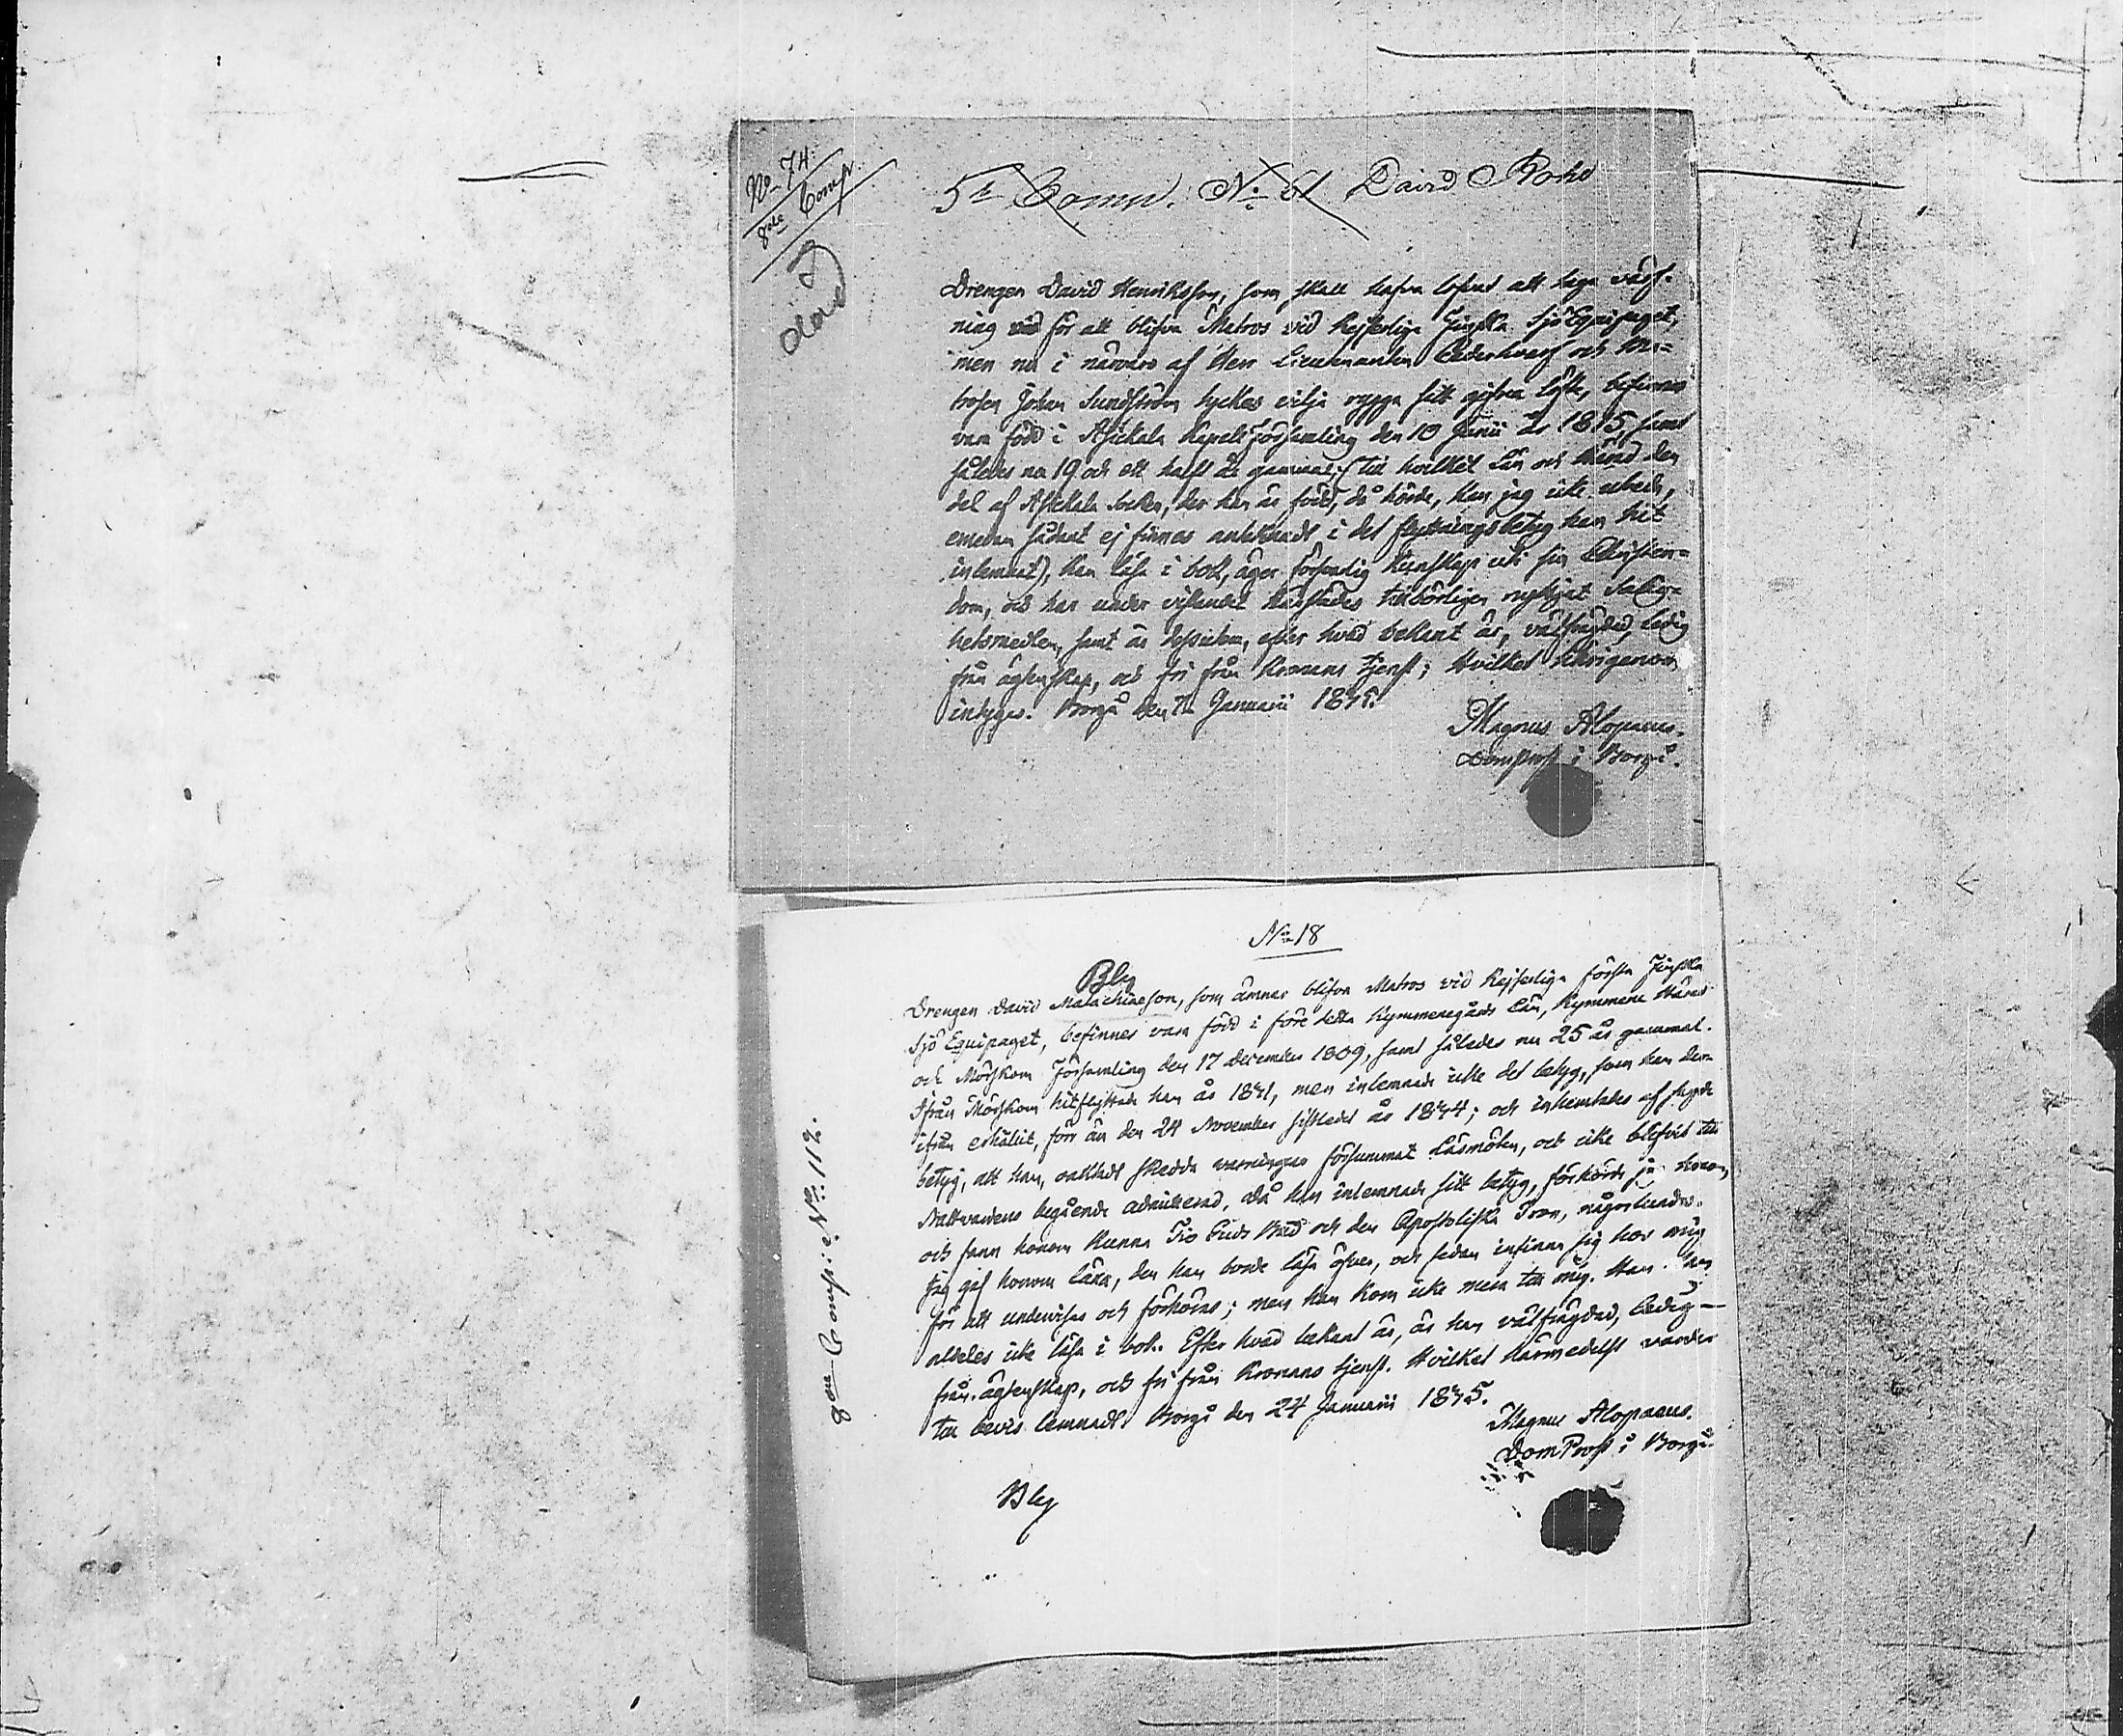 No 74.
8de Comp.
död
5te Comp. No 61 David Roko
Drengen David Henriksson, som skall hafva lofvat att taga värf-
ning vid för att blifva Matros vid Kejserliga Finska Sjö Equipaget,
men nu i närvaro af Herr Lieutenanten och Ma=
trosen Johan Sundström tyckes vilja rygga sitt gifna löfte, befinnes
vara född i Asickala Kapells Församling den 10 Junii år 1815, samt
således nu 19 och ett halft år gammal; (till hvilket Län och Härad den
del af Asickala Socken, der han är född, då hörde, kan jag icke utreda,
emedan sådant ej finnes antecknadt i det flyttningsbetyg han hit
inlemnat), kan läsa i bok, äger försvarlig kunskap uti sin Christen=
dom, och har under vistandet härstädes tillbörligen nyttjat Salig=
hetsmedlen, samt är dessutom, efter hvad bekant är, välfrägdad, ledig
från ägtenskap, och fri från Kronans tjenst; Hvilket härigenom
intygas. Borgå den 7 Januarii 1835.
Magnus Alopaeus.
Domprost i Borgå.
No 18
Bly
Drengen David Malachiaeson, som ämnar blifva Matros vid Kejserliga första Finska
Sjö Equipaget, befinnes vara född i före detta Kymmenegårds Län, Kymmene Härad
och Mörskom Församling den 17 December 1809, samt således nu 25 år gammal.
Ifrån Mörskom hitflyttade han år 1831, men inlemnade icke det betyg, som han der=
ifrån erhållit, förr än den 24 November sistledet år 1834; och inhemtades af sagde
betyg, att han, oaktadt skedda varningar försummat Läsmöten, och icke blifvit till
Nattvardens begående admitterad. Då han inlemnade sitt betyg, förhörde jag honom,
och fann honom kunna Tio Guds Bud och den Apostoliska Tron, någorlunda.
Jag gaf honom läxa, den han borde läsa öfver, och sedan infinna sig hos mig
för att undervisas och förhöras; men han kom icke mera till mig. Han kan
aldeles icke läsa i bok. Efter hvad bekant är, är han välfrägdad, ledig
från ägtenskap, och fri från Kronans tjenst. Hvilket härmedelst varder
till bevis lemnadt. Borgå den 24 Januarii 1835.
Magnus Alopaeus.
DomProst i Borgå.
Bly
8de Compie No 112.